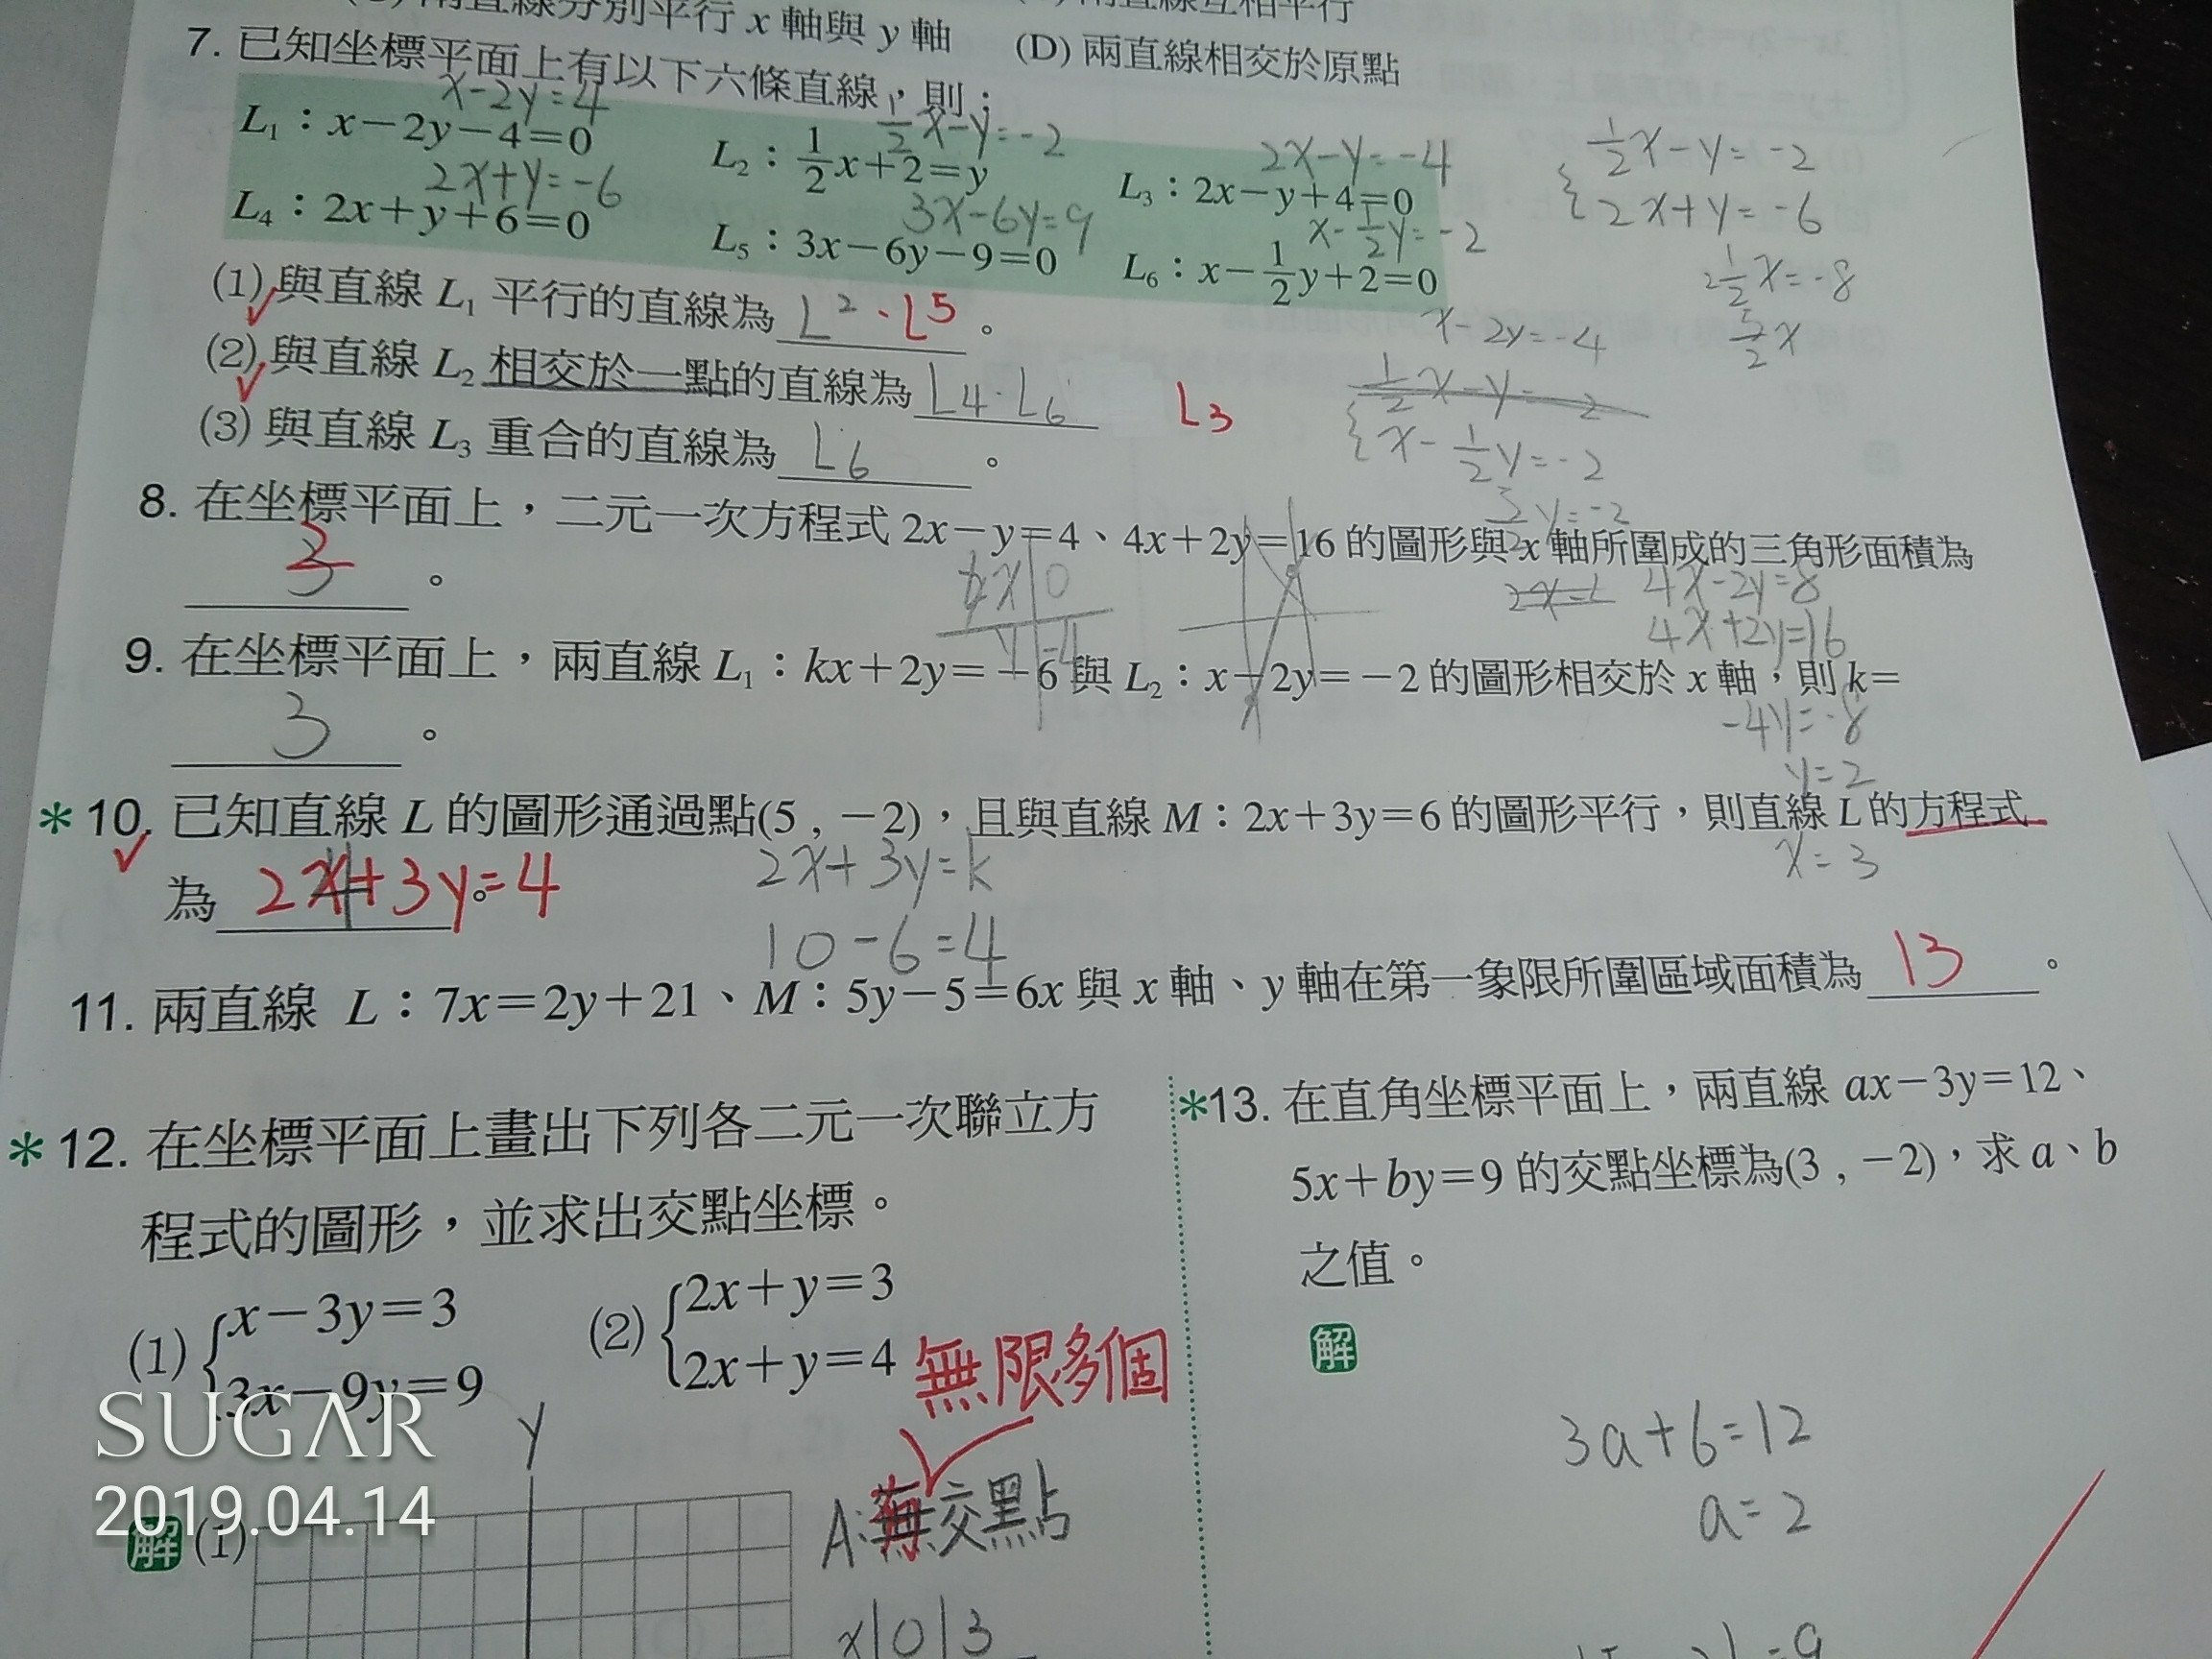 兩直線分別平行 x 軸與 y 軸
兩直線互相平行
(D) 兩直線相交於原點
7. 已知坐標平面上有以下六條直線，則：
x-2y=4
L₁：x－2y－4＝0
½x-y=-2
L₂：½x＋2＝y
2x-y=-4
L₃：2x－y＋4＝0
2x+y=-6
L₄：2x＋y＋6＝0
3x-6y=9
L₅：3x－6y－9＝0
x-½y=-2
L₆：x－½y＋2＝0
½x-y=-2
2x+y=-6
2½x=-8
5/2x
(1) 與直線 L₁ 平行的直線為 L2、L5。
(2) 與直線 L₂ 相交於一點的直線為 L4、L6 L3
(3) 與直線 L₃ 重合的直線為 L6。
x-2y=-4
½x-y=-2
x-½y=-2
3/2y=-2
8. 在坐標平面上，二元一次方程式 2x－y＝4、4x＋2y＝16 的圖形與 x 軸所圍成的三角形面積為
2 3。
x 0
y -4
4x-2y=8
4x+2y=16
9. 在坐標平面上，兩直線 L₁：kx＋2y＝－6 與 L₂：x－2y＝－2 的圖形相交於 x 軸，則 k＝
3。
-4y=-8
y=2
x=3
＊10. 已知直線 L 的圖形通過點(5 , －2)，且與直線 M：2x＋3y＝6 的圖形平行，則直線 L 的方程式
為 2x+3y=4。
2x+3y=k
10-6=4
11. 兩直線 L：7x＝2y＋21、M：5y－5＝6x 與 x 軸、y 軸在第一象限所圍區域面積為 13。
＊12. 在坐標平面上畫出下列各二元一次聯立方
程式的圖形，並求出交點坐標。
(1) x－3y＝3
3x－9y＝9
(2) 2x＋y＝3
2x＋y＝4
無限多個
y
解 (1)
A:無交點
x|0|3
＊13. 在直角坐標平面上，兩直線 ax－3y＝12、
5x＋by＝9 的交點坐標為(3 , －2)，求 a、b
之值。
解
3a+6=12
a=2
SUGAR
2019.04.14